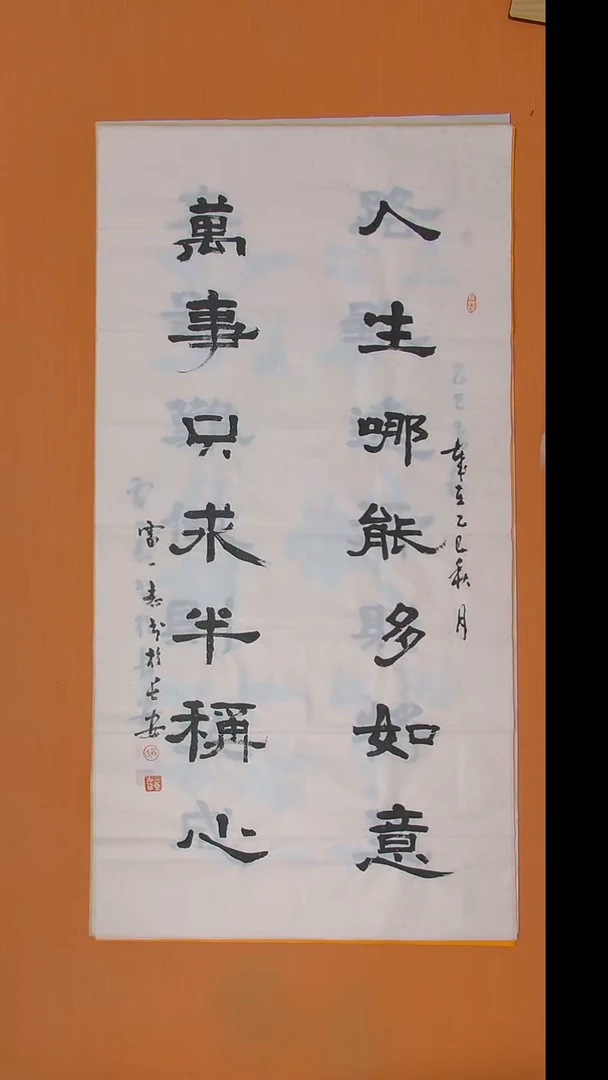 乙巳秋月
人生哪能多如意
萬事只求半稱心
雷一书於长安